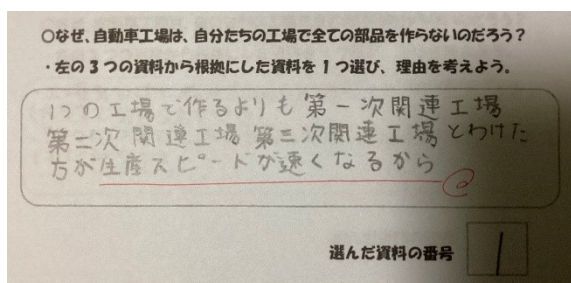 ○なぜ、自動車工場は、自分たちの工場で全ての部品を作らないのだろう？
・左の3つの資料から根拠にした資料を1つ選び、理由を考えよう。
1つの工場で作るよりも第一次関連工場
第二次関連工場第三次関連工場とわけた
方が生産スピードが速くなるから
選んだ資料の番号 1